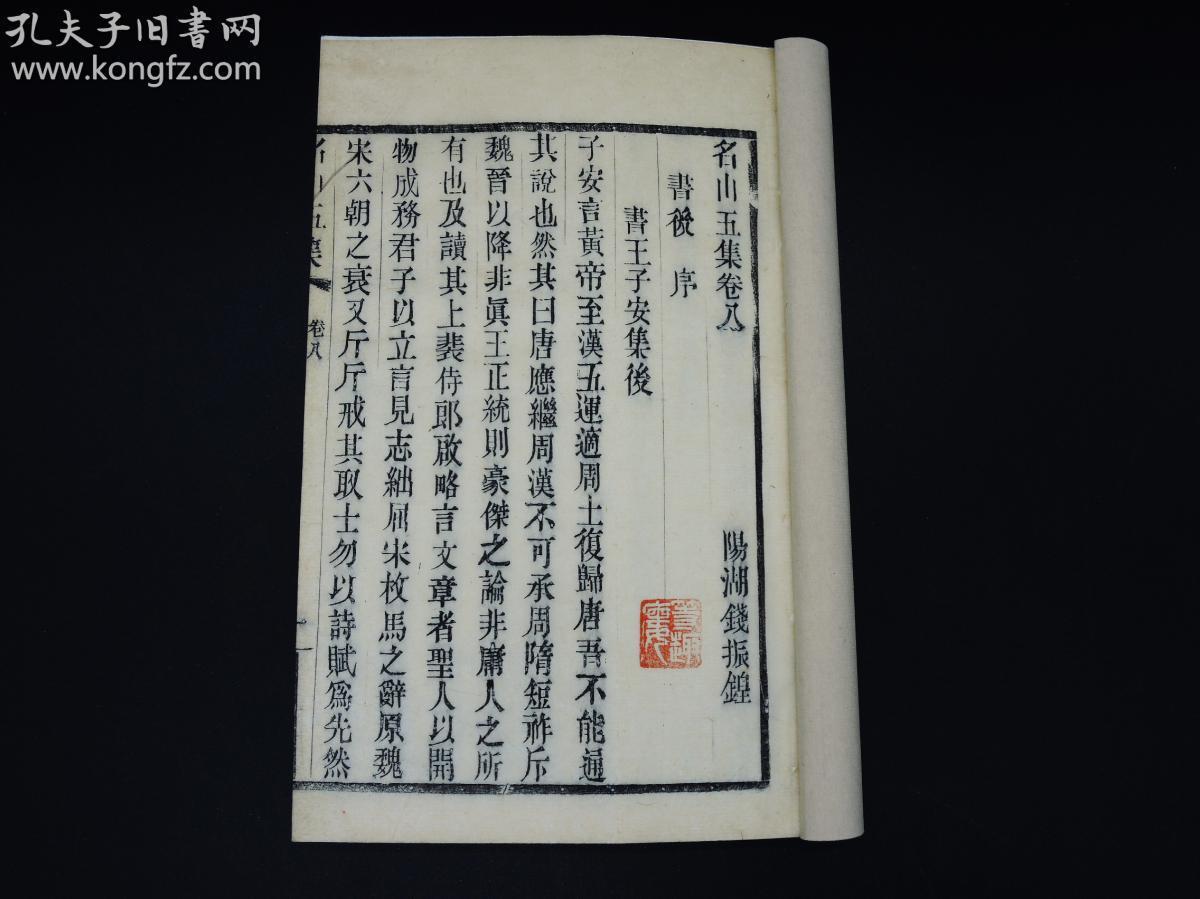 孔夫子旧书网
www.kongfz.com
名山五集卷八
陽湖錢振鍠
書後 序
書王子安集後
子安言黃帝至漢五運適周土復歸唐吾不能通
其說也然其曰唐應繼周漢不可承周隋短祚斥
魏晉以降非眞王正統則豪傑之論非庸人之所
有也及讀其上裴侍郎啟略言文章者聖人以開
物成務君子以立言見志絀屈宋枚馬之辭原魏
宋六朝之衰又斤斤戒其取士勿以詩賦爲先然
名山五集 卷八 一